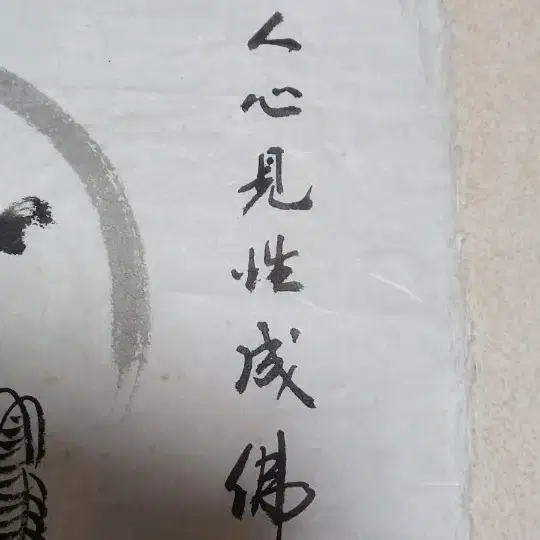 人心見性成佛